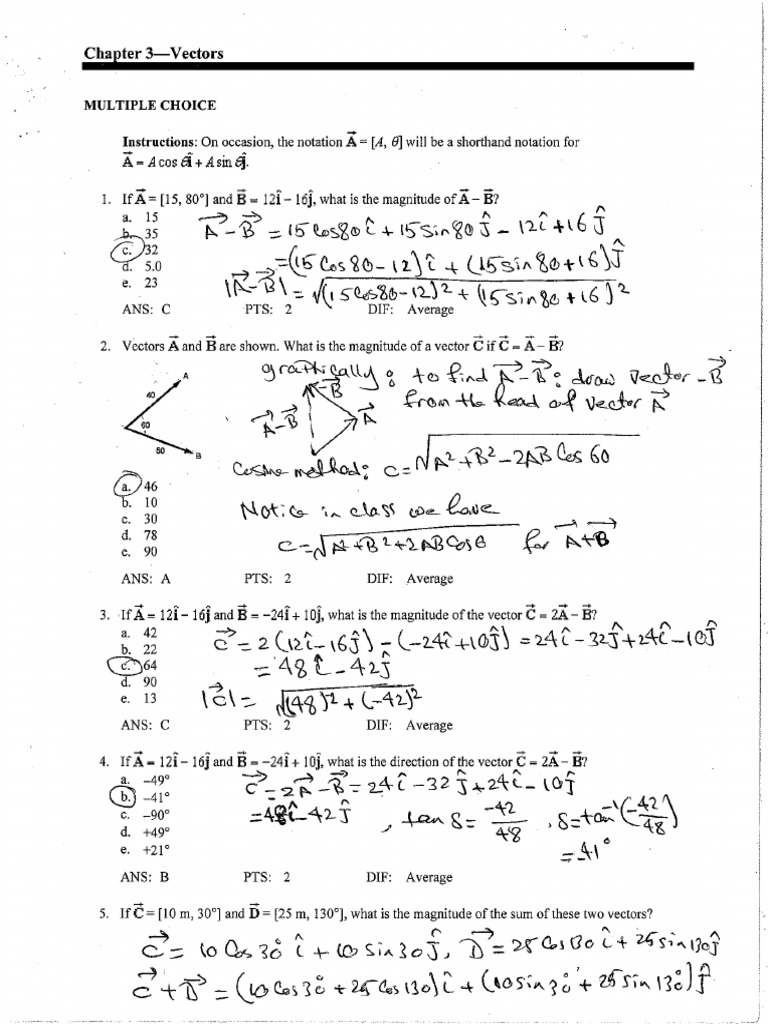 Chapter 3—Vectors
MULTIPLE CHOICE
Instructions: On occasion, the notation A⃗ = [A, θ] will be a shorthand notation for
A⃗ = A cos θî + A sin θĵ.
1. If A⃗ = [15, 80°] and B⃗ = 12î – 16ĵ, what is the magnitude of A⃗ – B⃗?
a. 15
b. 35
c. 32
d. 5.0
e. 23
A⃗ - B⃗ = 15 Cos80 î + 15 Sin 80 ĵ - 12 î + 16 ĵ
= (15 Cos 80 - 12) î + (15 Sin 80 + 16) ĵ
|A⃗ - B⃗| = √(15Cos80-12)² + (15 Sin 80 + 16)²
ANS: C PTS: 2 DIF: Average
2. Vectors A⃗ and B⃗ are shown. What is the magnitude of a vector C⃗ if C⃗ = A⃗ – B⃗?
graphically: to find A⃗ - B⃗: draw vector -B⃗
from the head of vector A⃗
A
40
60
50
B
-B⃗
A⃗-B⃗
A⃗
Cosine method: C = √A² + B² - 2AB Cos 60
a. 46
b. 10
c. 30
d. 78
e. 90
Notice in class we have
C = √A + B² + 2AB Cos θ for A⃗+B⃗
ANS: A PTS: 2 DIF: Average
3. If A⃗ = 12î – 16ĵ and B⃗ = –24î + 10ĵ, what is the magnitude of the vector C⃗ = 2A⃗ – B⃗?
a. 42
b. 22
c. 64
d. 90
e. 13
C⃗ = 2(12î - 16ĵ) - (-24î + 10ĵ) = 24î - 32ĵ + 24î - 10ĵ
= 48 î - 42 ĵ
|C⃗| = √(48)² + (-42)²
ANS: C PTS: 2 DIF: Average
4. If A⃗ = 12î – 16ĵ and B⃗ = –24î + 10ĵ, what is the direction of the vector C⃗ = 2A⃗ – B⃗?
a. –49°
b. –41°
c. –90°
d. +49°
e. +21°
C⃗ = 2A⃗ - B⃗ = 24î - 32ĵ + 24î - 10ĵ
= 48î - 42ĵ , tan δ = -42/48 , δ = tan⁻¹(-42/48)
= -41°
ANS: B PTS: 2 DIF: Average
5. If C⃗ = [10 m, 30°] and D⃗ = [25 m, 130°], what is the magnitude of the sum of these two vectors?
C⃗ = 10 Cos 30° î + 10 Sin 30 ĵ, D⃗ = 25 Cos 130 î + 25 sin 130 ĵ
C⃗ + D⃗ = (10 Cos 30° + 25 Cos 130) î + (10 sin 30° + 25 sin 130°) ĵ